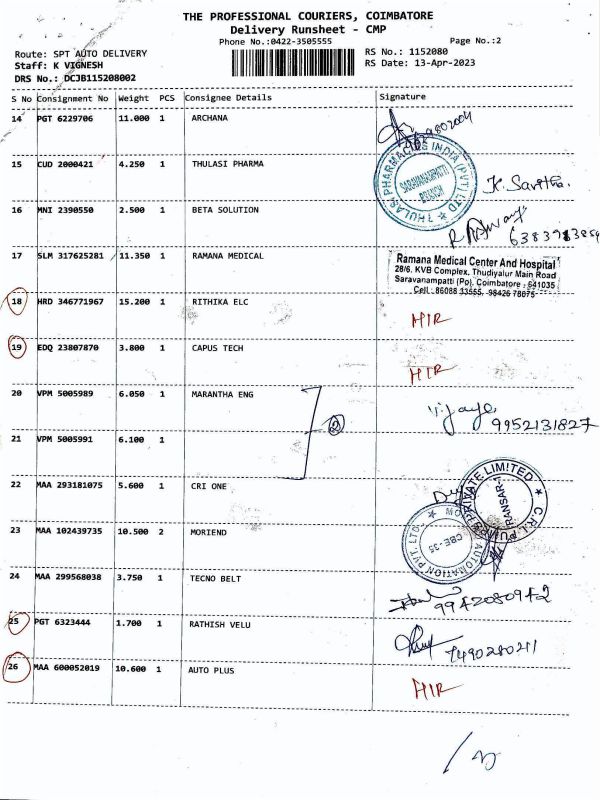 THE PROFESSIONAL COURIERS, COIMBATORE
Delivery Runsheet - CMP
Phone No.:0422-3505555 Page No.:2
Route: SPT AUTO DELIVERY RS No.: 1152080
Staff: K VIGNESH RS Date: 13-Apr-2023
DRS No.: DCJB115208002
S No Consignment No Weight PCS Consignee Details Signature
14 PGT 6229706 11.000 1 ARCHANA
15 CUD 2000421 4.250 1 THULASI PHARMA
THULASI PHARMACIES INDIA (PVT) LTD
SARAVANAMPATTI
BRANCH
K. Savitha.
16 MNI 2390550 2.500 1 BETA SOLUTION
17 SLM 317625281 11.350 1 RAMANA MEDICAL
Ramana Medical Center And Hospital
28/6. KVB Complex, Thudiyalur Main Road
Saravanampatti (Po), Coimbatore - 641035
Cell : 86088 33565, 98426 78075
18 HRD 346771967 15.200 1 RITHIKA ELC HIR
19 EDQ 23807870 3.800 1 CAPUS TECH HIR
20 VPM 5005989 6.050 1 MARANTHA ENG
9952131827
21 VPM 5005991 6.100 1
22 MAA 293181075 5.600 1 CRI ONE
23 MAA 102439735 10.500 2 MORIEND
AUTOMATION PVT. LTD.
CBE-35
24 MAA 299568038 3.750 1 TECNO BELT 9942080942
25 PGT 6323444 1.700 1 RATHISH VELU
26 MAA 600052019 10.600 1 AUTO PLUS HIR